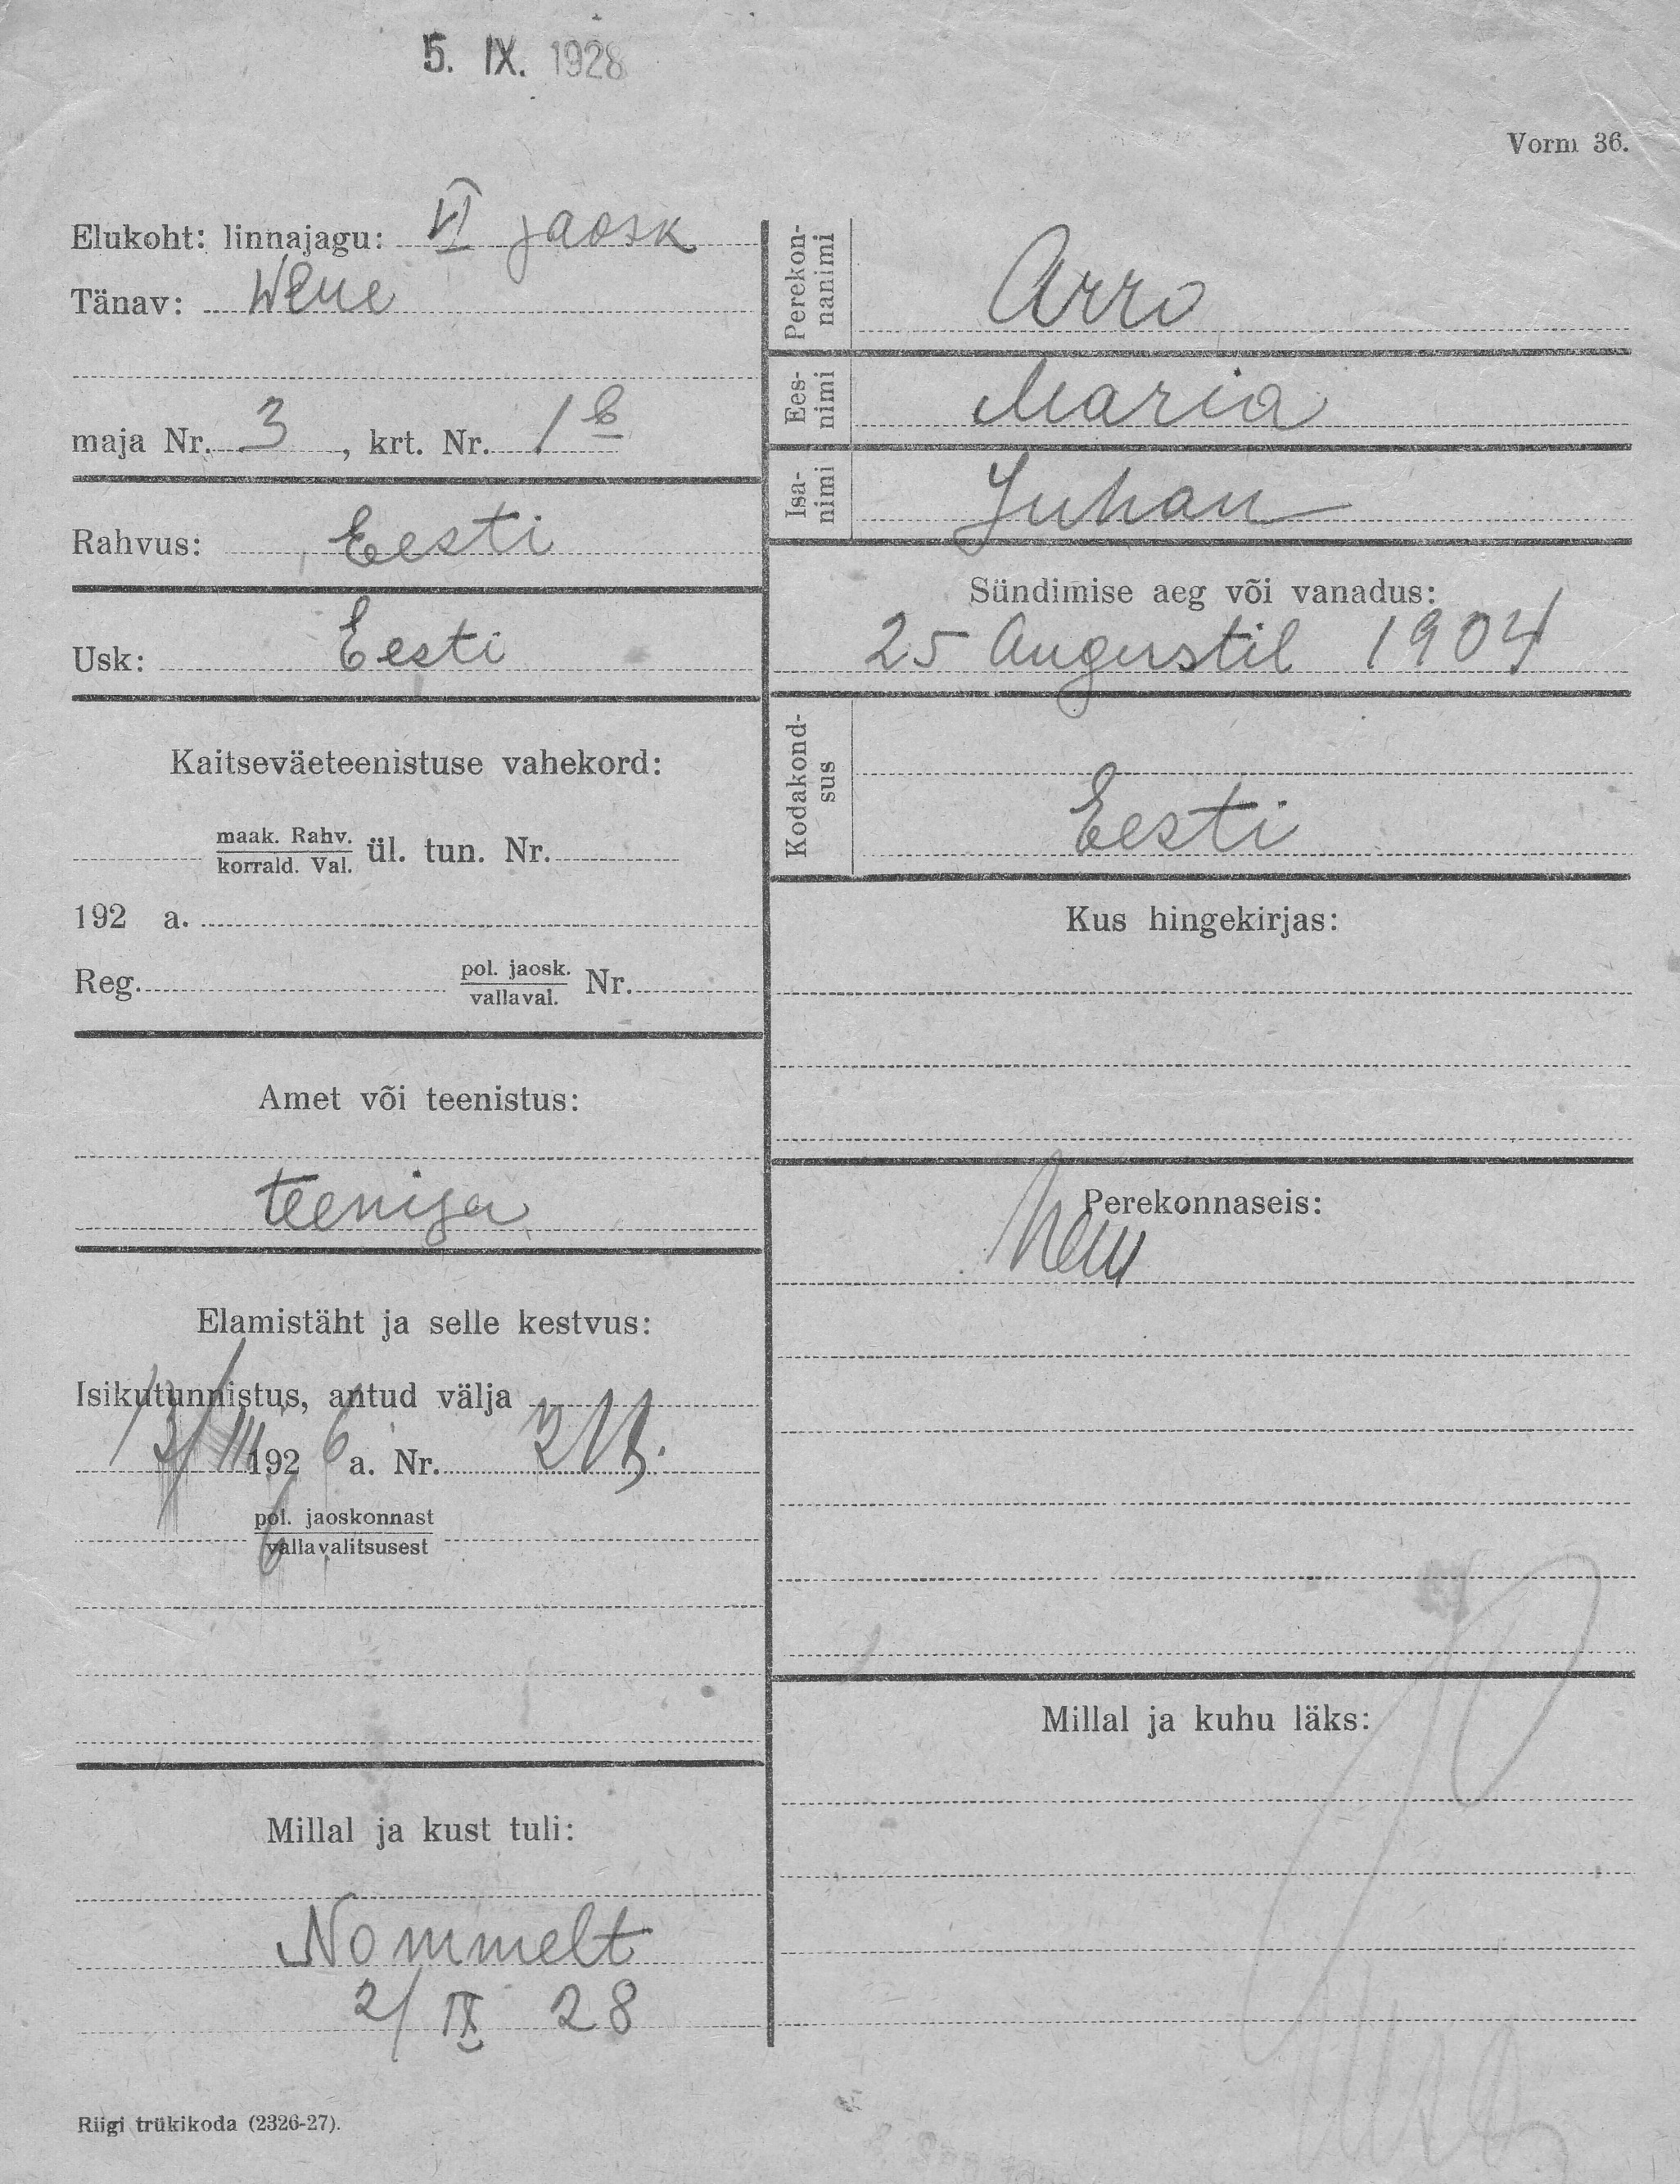 5. IX. 1928
Vorm 36.
Elukoht: linnajagu: VI jaosk
Tänav: Wene
maja Nr. 3, krt. Nr. 1 b
Rahvus: Eesti
Usk: Eesti
Kaitseväeteenistuse vahekord:
maak. Rahv.
korrald. Val. ül. tun. Nr.
192 a.
Reg. pol. jaosk.
vallaval. Nr.
Amet või teenistus:
teenija
Elamistäht ja selle kestvus:
Isikutunnistus, antud välja
13/III 1926 a. Nr.
pol. jaoskonnast
6
vallavalitsusest
Millal ja kust tuli:
Nommelt
2/IX 28
Riigi trükikoda (2326-27).
Perekon-
nanimi
Arro
Ees-
nimi
Maria
Isa-
nimi
Juhan
Sündimise aeg või vanadus:
25 Augustil 1904
Kodakond-
sus
Eesti
Kus hingekirjas:
Perekonnaseis:
Millal ja kuhu läks: